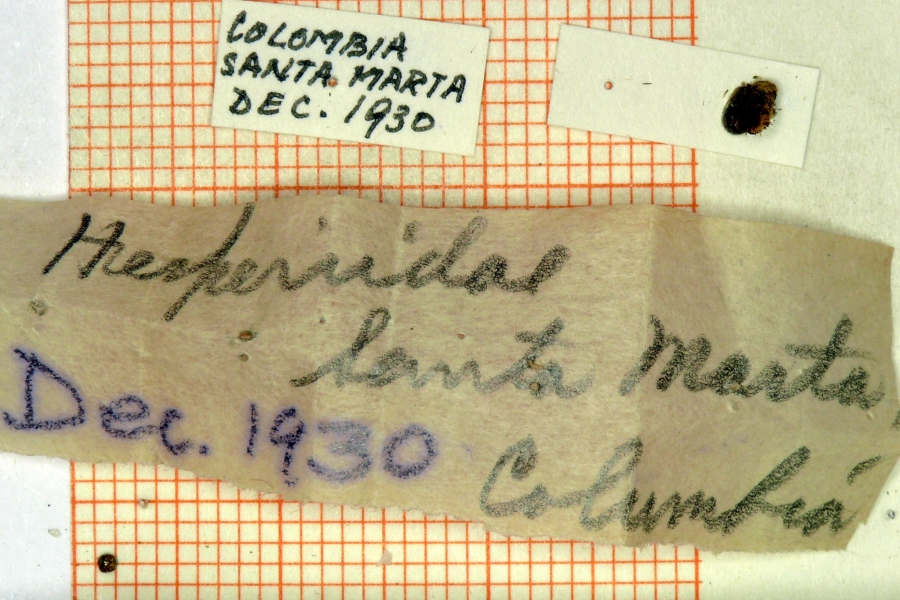 COLOMBIA
SANTA MARTA
DEC. 1930
Hesperiidae
Santa Marta,
Dec. 1930
Columbia